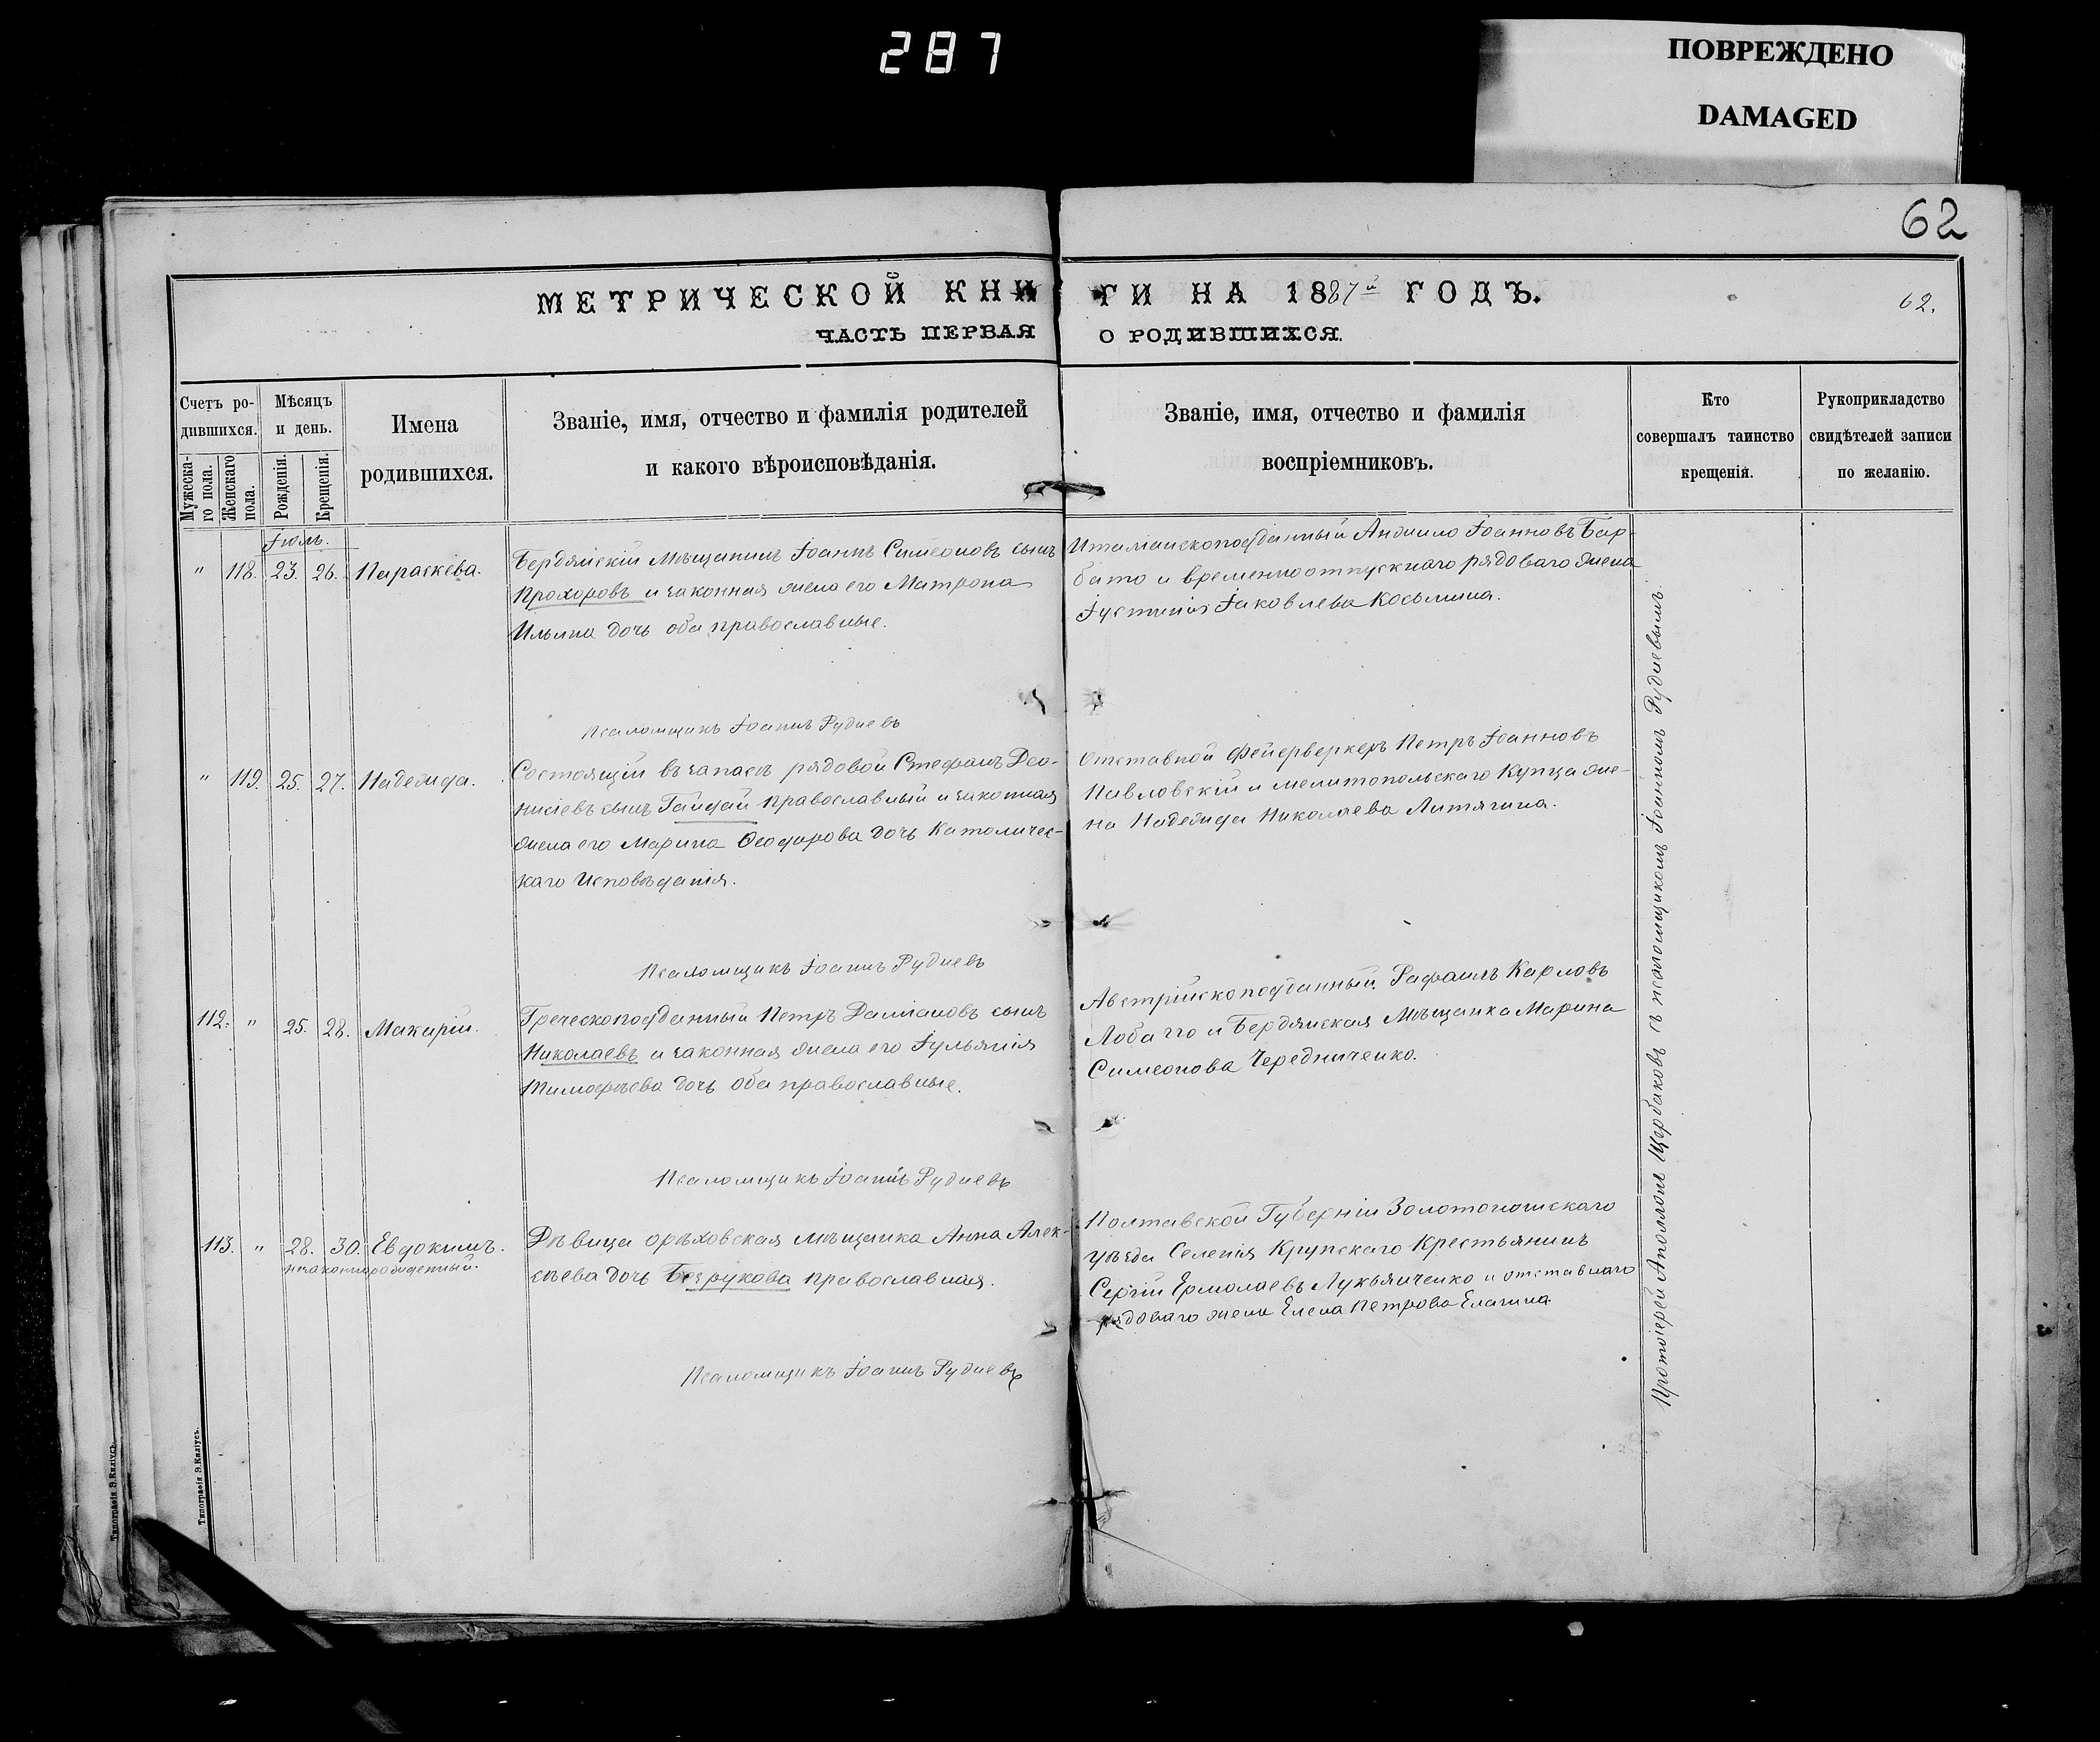 287
ПОВРЕЖДЕНО
DAMAGED
62
МЕТРИЧЕСКОЙ КНИГИ НА 1887й ГОДЪ.
62.
ЧАСТЬ ПЕРВАЯ О РОДИВШИХСЯ.
Счетъ ро-
дившихся.
Мужеска-
го пола.
Женскаго
пола.
Мѣсяцъ
и день.
Рожденія.
Крещенія.
Имена
родившихся.
Званіе, имя, отчество и фамилія родителей
и какого вѣроисповѣданія.
Званіе, имя, отчество и фамилія
воспріемниковъ.
Кто
совершалъ таинство
крещенія.
Рукоприкладство
свидѣтелей записи
по желанію.
Іюль.
" 118. 23. 26. Параскева.
Бердянскій Мѣщанинъ Іоаннъ Симеоновъ сынъ
Прохоровъ и законная жена его Матрона
Ильина дочь оба православные.
Италіанскоподданный Іоанновъ Бар-
бато и временноотпускнаго рядоваго жена
Іустинія Іаковлева Косьмина.
Псаломщикъ Іоаннъ Рудневъ
" 119. 25. 27. Надежда.
Состоящій въ запасѣ рядовой Стефанъ Део-
нисіевъ сынъ Гайдай православный и законная
жена его Марина Ѳеодорова дочь Католичес-
каго Исповѣданія.
Отставной фейерверкеръ Петръ Іоанновъ
Павловскій и мелитопольскаго Купца же-
на Надежда Николаева Литягина.
Псаломщикъ Іоаннъ Рудневъ
112. " 25. 28. Макарій.
Греческоподданный Петръ Даміановъ сынъ
Николаевъ и законная жена его Іульянія
Тимофѣева дочь оба православные.
Австрійскоподданный Рафаилъ Карловъ
и Бердянская Мѣщанка Марина
Симеонова Чередниченко.
Псаломщикъ Іоаннъ Рудневъ
113. " 28. 30. Евдокимъ.
незаконнорожденный.
Дѣвица орѣховская мѣщанка Анна Алек-
сѣева дочь Безрукова православная.
Полтавской Губерніи Золотоношскаго
уѣзда Селенія Крупскаго Крестьянинъ
Сергій Ермолаевъ Лукьянченко и отставнаго
рядоваго жена Елена Петрова Елагина.
Псаломщикъ Іоаннъ Рудневъ
Протоіерей Аполлонъ Щербаковъ съ псаломщикомъ Іоанномъ Рудневымъ.
Типографія Э. Киліусъ.
Типографія Э. Киліусъ.